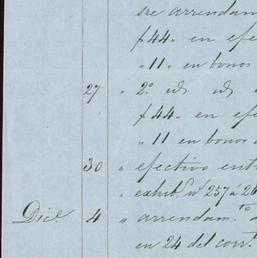 sre arrendam
$44. en efe
" 11. en bonos
27 " 2.º id id
$44. en efe
" 11 en bonos
30 " efectivo ent
" exhib. nº 257 a 26
Dice. 4 " arrendam.to
en 24 del corr.te